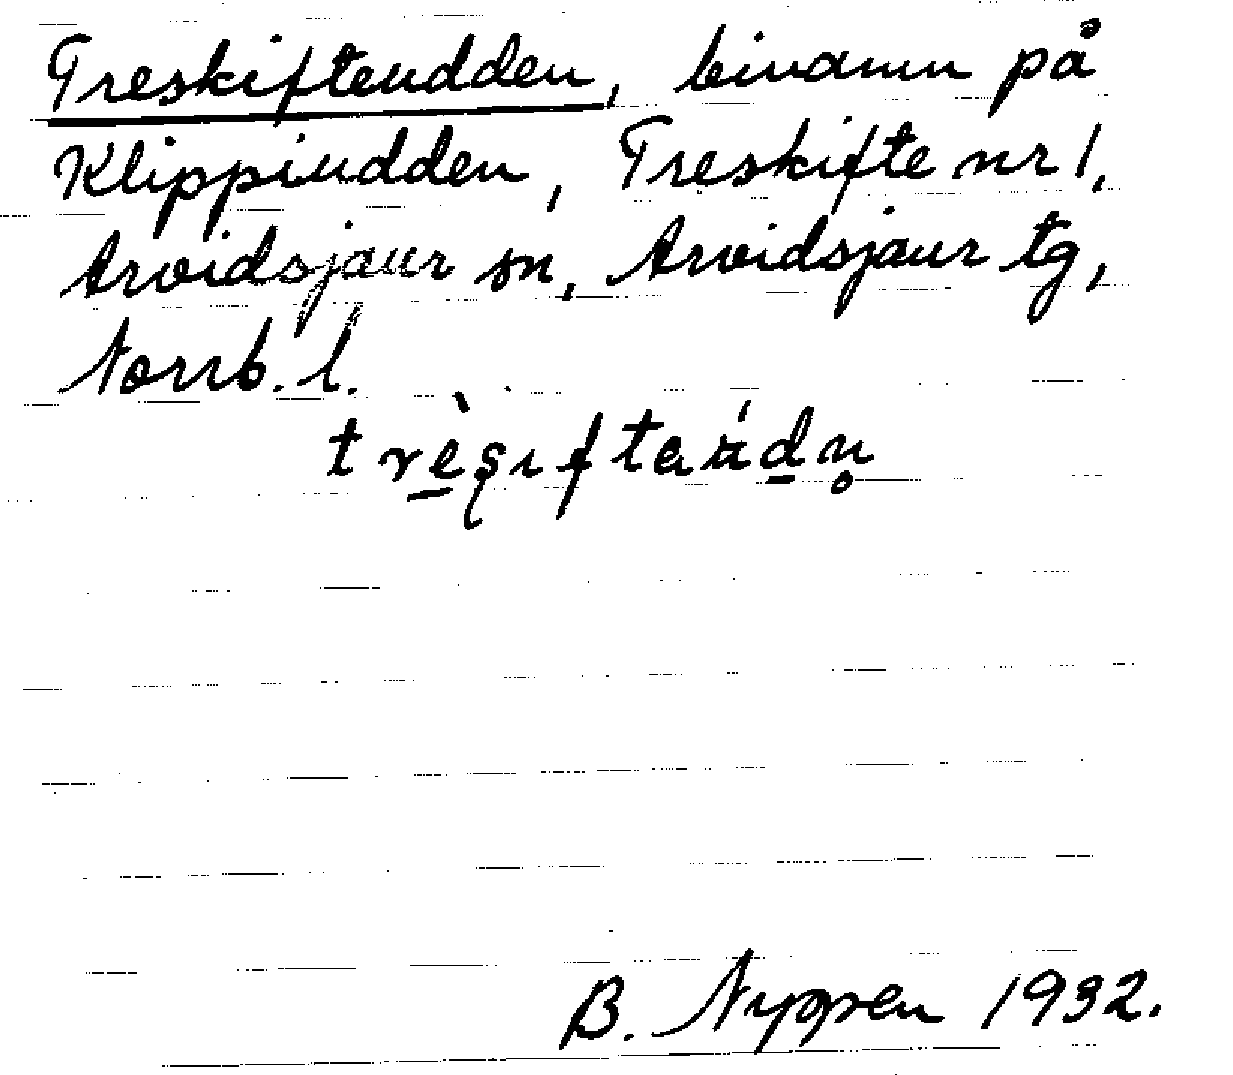 Treskifteudden, binamn på
Klippiudden, Treskifte nr 1,
Arvidsjaur sn, Arvidsjaur tg,
Norrb. l.
B. Nyppen 1932.